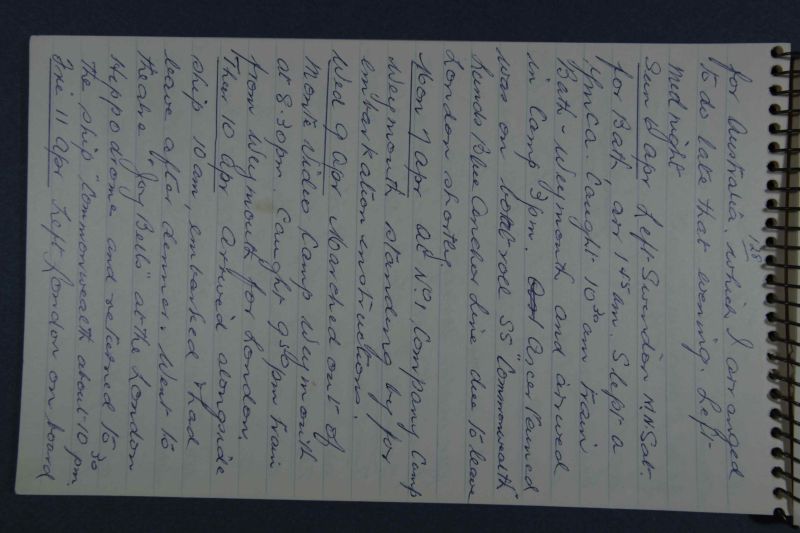 128
for Australia. which I arranged
to do late that evening. Left
Midnight
Sun 6 Apr Left Swindon M.N Sat.
for Bath arr 1 45 am. Slept a
Ymca. Caught 10 30 am train
Bath - Weymouth and arrived
in Camp 3 pm. ascertained
was on boat roll SS "Commonwealth"
Lunds Blue Anchor Line due to leave
London shortly.
Mon 7 Apr at No 1 Company Camp
Weymouth standing by for
embarkation instructions.
Wed 9 Apr Marched out of
Monte Video Camp Weymouth
at 8.30 pm. Caught 9 50 pm train
from Weymouth for London.
Thur 10 Apr arrived alongside
ship 10 am, embarked & had
leave after dinner. Went to
theatre "Joy Bells" at the London
Hippodrome and returned to
the ship "Commonwealth about 10 30 pm.
Fri 11 Apr Left London on board